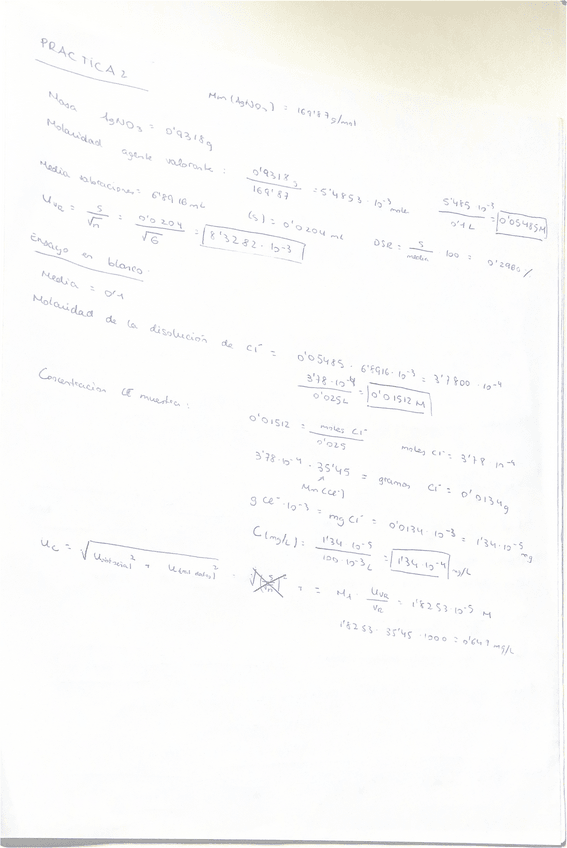 PRACTICA 2
Mm (AgNO₃) = 169'87 g/mol
Masa AgNO₃ = 0'9318g
Molaridad agente valorante : 0'9318g / 169'87 = 5'4853 · 10⁻³ moles 5'485 · 10⁻³ / 0'1 L = 0'05485M
Media valoraciones = 6'8916 mL (s) = 0'0204 mL DSR = s / media · 100 = 0'2960 /
U_VR = s / √n = 0'0204 / √6 = 8'3282 · 10⁻³
Ensayo en blanco.
Media = 0'1
Molaridad de la disolución de Cl⁻ = 0'05485 · 6'8916 · 10⁻³ = 3'7800 · 10⁻⁴
3'78 · 10⁻⁴ / 0'025L = 0'01512 M
Concentración muestra :
0'01512 = moles Cl⁻ / 0'025 moles Cl⁻ = 3'78 · 10⁻⁴
3'78 · 10⁻⁴ · 35'45 = gramos Cl⁻ = 0'0134g
Mm (Cl⁻)
g Cl⁻ · 10⁻³ = mg Cl⁻ = 0'0134 · 10⁻³ = 1'34 · 10⁻⁵ mg
C (mg/L) : 1'34 · 10⁻⁵ / 100 · 10⁻³ L = 1'34 · 10⁻⁴ mg/L
U_C = = M₁ · U_VR / V_R = 1'8253 · 10⁻⁵ M
1'8253 · 35'45 · 1000 = 0'6471 mg/L